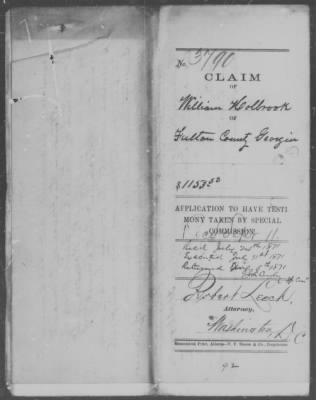 No. 3790
CLAIM
OF
William Holbrook
OF
Fulton County Georgia
$1153.52
APPLICATION TO HAVE TESTI
MONY TAKEN BY SPECIAL
COMMISSION
Recd July 20th 1871
Executed July 31st 1871
Returned 1871
Robert Leech,
Attorney,
Washington, D C
92